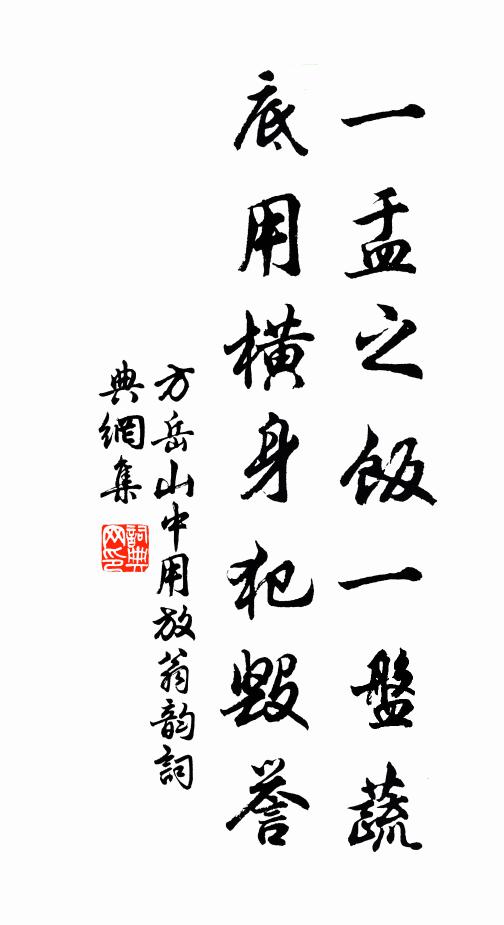 一盂之飯一盤蔬
底用橫身犯毀誉
方岳山中用放翁韵詞
典網集
詞典
网印